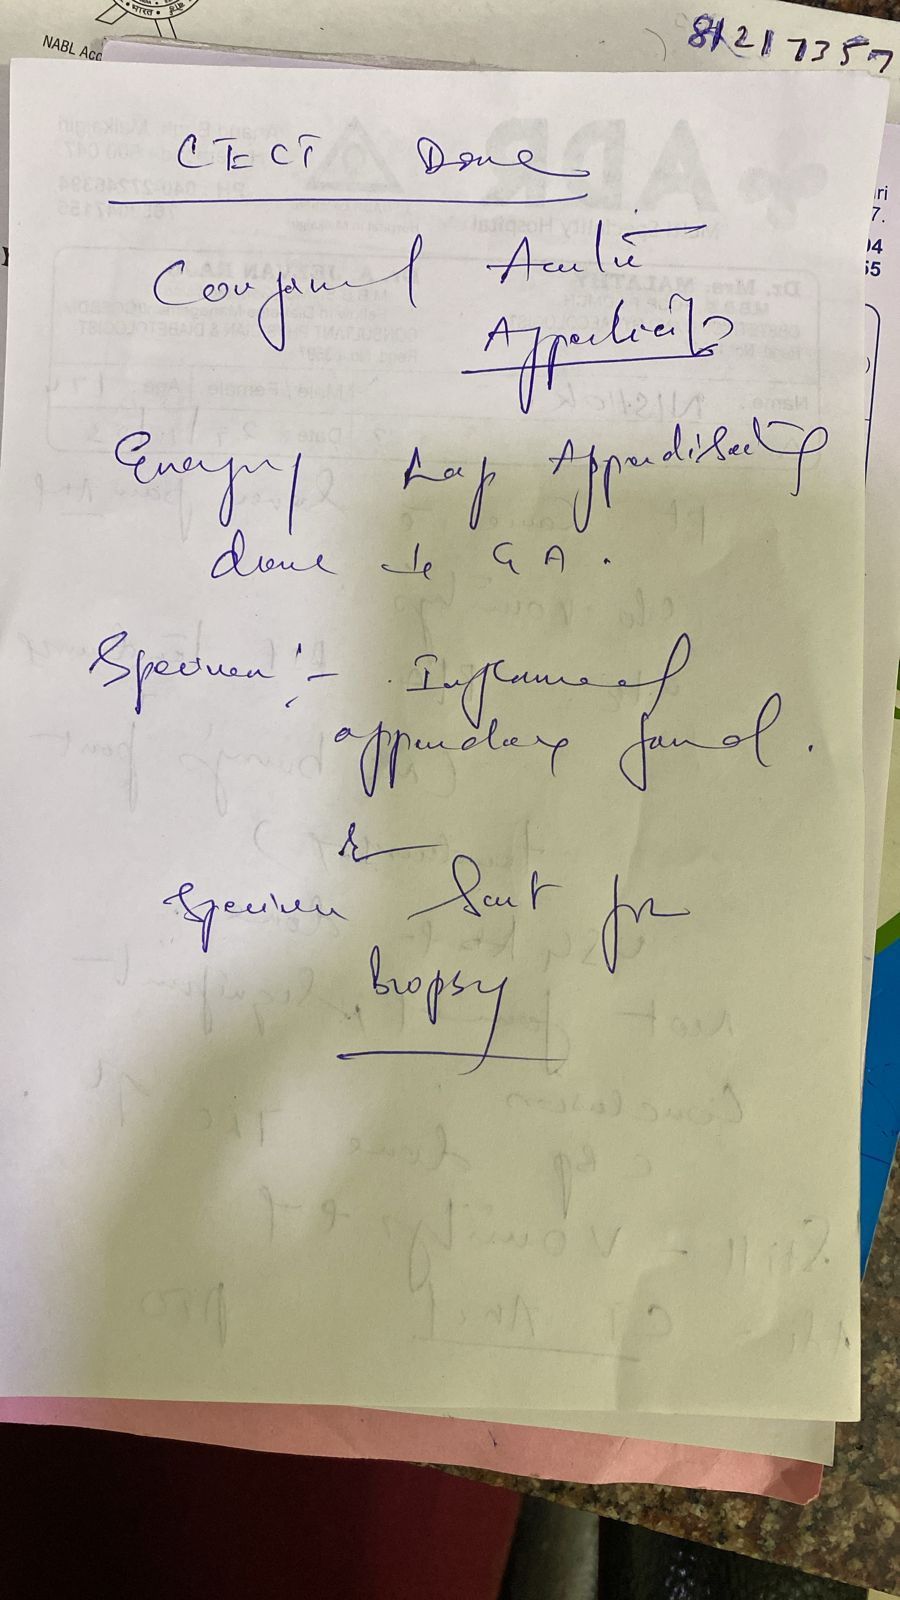 NABL Acc
8121735
CECT Done
Confirmed Acute
Appendicitis
Emergency Lap Appendisectomy
done GA.
Specimen :- Inflamed
appendax found.
&
Specimen Sent for
Biopsy